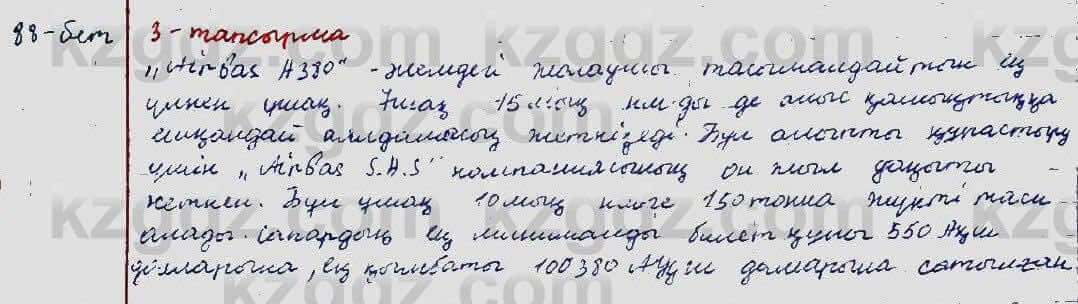 88-бет 3-тапсырма
"Airbas A380" - әлемдегі жолаушы тасымалдайтын ең
үлкен ұшақ. Ұшақ 15 мың км-ды де алыс қашықтыққа
ешқандай аялдамасыз жеткізеді. Бұл алыпты құрастыру
үшін "Airbas S.A.S" компаниясының он жыл уақыты
кеткен. Бұл ұшақ 10 мың км-ге 150 тонна жүкті таси
алады. Сапардың ең минималды билет құны 550 АҚШ
долларына, ең қымбаты 100380 АҚШ долларына сатылған